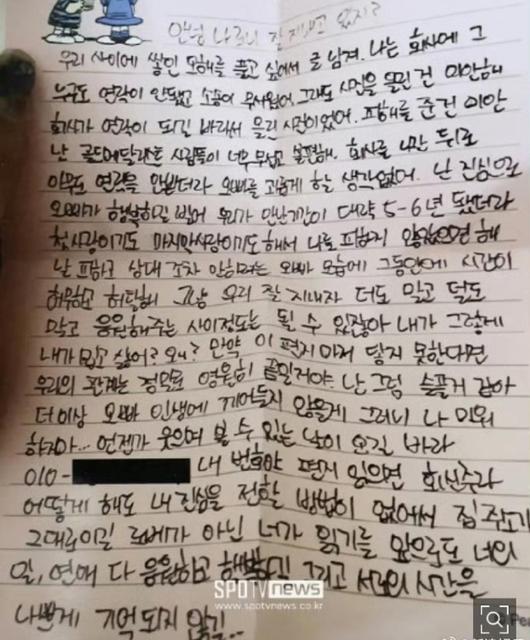 안녕 나루니 잘 지내고 있지?
우리 사이에 쌓인 오해를 풀고 싶어서 글 남겨. 나는 회사에 그
누구도 연락이 안됐고 소송이 무서웠어. 그래도 사진을 올린 건 미안해
회사가 연락이 되길 바라서 올린 사진이었어. 피해를 준건 미안
난 골드메달리스트 사람들이 너무 무섭고 불편해. 회사를 나간 뒤로
아무도 연락을 안받더라 오빠를 괴롭게 할 생각 없어. 난 진심으로
오빠가 행복하길 빌어 우리가 만난기간이 대략 5-6년 됐더라
첫사랑이기도 마지막사랑이기도 해서 나를 피하지 않았으면 해
날 피하고 상대 조차 안하려는 오빠 모습에 그동안에 시간이
허무하고 허탈해 그냥 우리 잘 지내자 더도 말고 덜도
말고 응원해주는 사이정도는 될 수 있잖아 내가 그렇게
내가 밉고 싫어? 왜? 만약 이 편지마저 닿지 못한다면
우리의 관계는 정말로 영원히 끝일거야. 난 그럼 슬플거 같아
더이상 오빠 인생에 끼어들지 않을게 그러니 나 미워
하지마... 언젠가 웃으며 볼 수 있는 날이 오길 바라
010- 내 번호야 편지 읽으면 회신주라
어떻게 해도 내 진심을 전할 방법이 없어서 집 주소가
그대로이길 로베가 아닌 너가 읽기를 앞으로도 너의
일, 연애 다 응원하고 행복 그리고 서로의 시간을
나쁘게 기억되지 않길...
SPOTVnews
www.spotvnews.co.kr